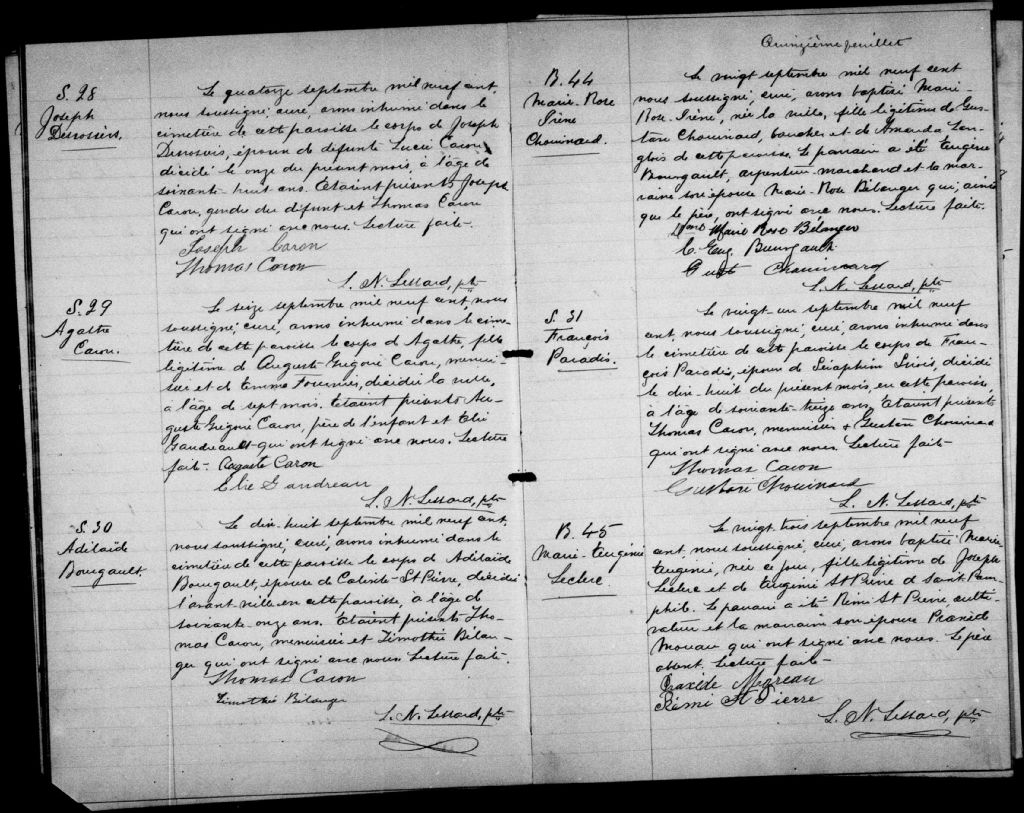 S. 28
Joseph
Desrosiers.
Le quatorze septembre mil neuf cent
nous soussigné, curé, avons inhumé dans le
cimetière de cette paroisse le corps de Joseph
Desrosiers, époux de défunte Lucie Caron,
décédé le onze du présent mois, à l'âge de
soixante-huit ans. Etaient présents Joseph
Caron, gendre du défunt et Thomas Caron
qui ont signé avec nous. Lecture faite.
Joseph Caron
Thomas Caron
L. N. Lessard, ptre
S. 29
Agathe
Caron.
Le seize septembre mil neuf cent, nous
soussigné, curé, avons inhumé dans le cime-
tière de cette paroisse le corps d'Agathe, fille
légitime d'Auguste Grégoire Caron, menui-
sier et d'Emma Fournier, décédée la veille,
à l'âge de sept mois. Etaient présents Au-
guste Grégoire Caron, père de l'enfant et Elie
Gaudreault qui ont signé avec nous. Lecture
faite. Auguste Caron
Elie Gaudreau
L. N. Lessard, ptre
S. 30
Adélaïde
Bourgault.
Le dix-huit septembre mil neuf cent,
nous soussigné, curé, avons inhumé dans le
cimetière de cette paroisse le corps d'Adélaïde
Bourgault, épouse de Calixte St Pierre, décédée
l'avant veille en cette paroisse, à l'âge de
soixante-onze ans. Etaient présents Tho-
mas Caron, menuisier et Timothée Bélan-
ger qui ont signé avec nous. Lecture faite.
Thomas Caron
Timothée Bélanger
L. N. Lessard, ptre
Quinzième feuillet
B. 44
Marie-Rose
Irène
Chouinard.
Le vingt septembre mil neuf cent
nous soussigné, curé, avons baptisé Marie
Rose-Irène, née la veille, fille légitime de Gus-
tave Chouinard, boucher et de Amanda Lan-
glois de cette paroisse. Le parrain a été Eugène
Bourgault, arpenteur-marchand et la mar-
raine son épouse Marie-Rose Bélanger qui, ainsi
que le père, ont signé avec nous. Lecture faite.
Marie Rose Bélanger
C. Eug. Bourgault
Gust Chouinard
L. N. Lessard, ptre
S. 31
François
Paradis.
Le vingt-un septembre mil neuf
cent, nous soussigné, curé, avons inhumé dans
le cimetière de cette paroisse le corps de Fran-
çois Paradis, époux de Séraphine Sirois, décédé
le dix-huit du présent mois, en cette paroisse,
à l'âge de soixante-treize ans. Etaient présents
Thomas Caron, menuisier & Gustave Chouinard
qui ont signé avec nous. Lecture faite.
Thomas Caron
Gustave Chouinard
L. N. Lessard, ptre
B. 45
Marie-Eugénie
Leclerc.
Le vingt-trois septembre mil neuf
cent, nous soussigné, curé, avons baptisé Marie
Eugénie, née ce jour, fille légitime de Joseph
Leclerc et de Eugénie St Pierre de Saint Pam-
phile. Le parrain a été Rémi St Pierre, culti-
vateur et la marraine son épouse Praxède
Moreau qui ont signé avec nous. Le père
absent. Lecture faite.
Praxède Moreau
Rémi St Pierre
L. N. Lessard, ptre